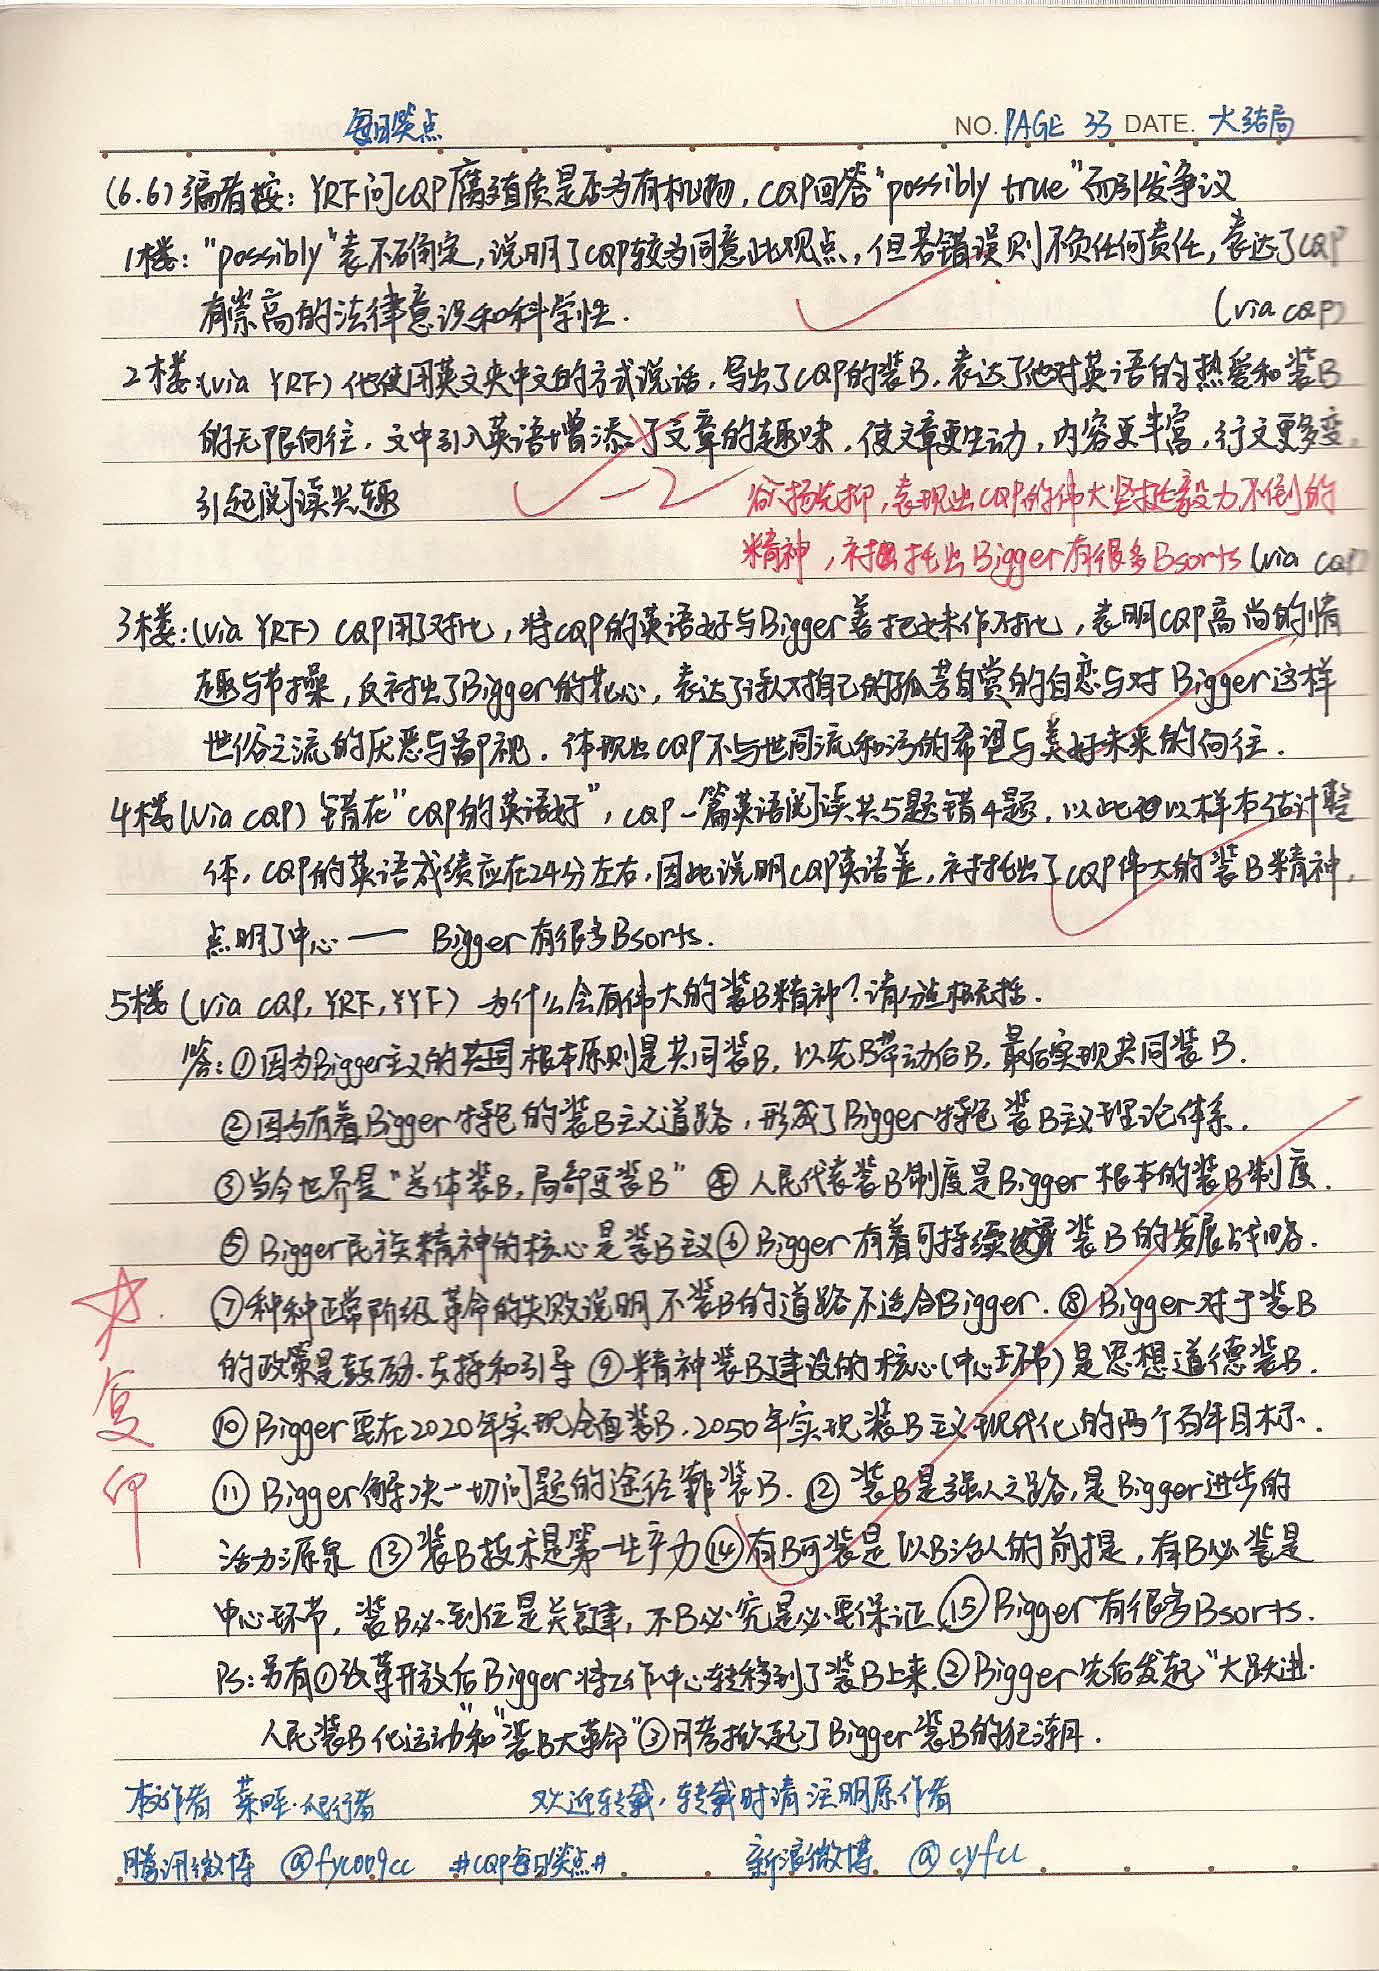 每日笑点
NO. PAGE 33 DATE. 大结局
(6.6) 编者按：YRF问CQP腐殖质是否为有机物，CQP回答"possibly true"而引发争议
1楼："possibly"表不确定，说明了CQP较为同意此观点，但若错误则不负任何责任，表达了CQP
有崇高的法律意识和科学性．
(via CQP)
2楼：(via YRF) 他使用英文夹中文的方式说话，写出了CQP的装B，表达了他对英语的热爱和装B
的无限向往．文中引入英语增添了文章的趣味，使文章更生动，内容更丰富，行文更多变，
引起阅读兴趣
-2
欲扬先抑，表现出CQP的伟大坚挺毅力不倒的
精神，衬托出Bigger有很多Bsorts (via CQP)
3楼：(via YRF) CQP用了对比，将CQP的英语好与Bigger善把妹作对比，表明CQP高尚的情
趣与节操，反衬出了Bigger的花心，表达了诗人对自己的孤芳自赏的自恋与对 Bigger这样
世俗之流的厌恶与鄙视．体现出CQP不与世同流和污的希望与美好未来的向往．
4楼(via CQP) 错在"CQP的英语好"，CQP一篇英语阅读共5题错4题，以此以样本估计整
体，CQP的英语成绩应在24分左右，因此说明CQP英语差，衬托出了CQP伟大的装B精神，
点明了中心—— Bigger有很多Bsorts．
5楼 (via CQP, YRF, YYF) 为什么会有伟大的装B精神？请分点概括．
答：①因为Bigger主义的根本原则是共同装B，以先B带动后B，最后实现共同装B．
②因为有着Bigger特色的装B主义道路，形成了Bigger特色装B主义理论体系．
③当今世界是"总体装B，局部更装B" ④ 人民代表装B制度是Bigger根本的装B制度．
⑤ Bigger民族精神的核心是装B主义 ⑥ Bigger有着可持续装B的发展战略．
⑦种种正常阶级革命的失败说明不装B的道路不适合Bigger．⑧ Bigger对于装B
的政策是鼓励．支持和引导 ⑨精神装B建设的核心(中心环节)是思想道德装B．
⑩ Bigger要在2020年实现全面装B．2050年实现装B主义现代化的两个百年目标．
⑪ Bigger解决一切问题的途径靠装B．⑫ 装B是强人之路，是Bigger进步的
活力源泉 ⑬装B技术是第一生产力 ⑭有B可装是以B治人的前提，有B必装是
中心环节，装B必到位是关键，不B必究是必要保证 ⑮ Bigger有很多Bsorts．
PS：另有①改革开放后Bigger将工作中心转移到了装B上来．②Bigger先后发起"大跃进．
人民装B化运动"和"装B大革命"③月考掀起了Bigger装B的狂潮．
☆
复
印
本作者 菜眸·爬行者 欢迎转载，转载时请注明原作者
腾讯微博 @fyc009cc #CQP每日笑点# 新浪微博 @cyfcc